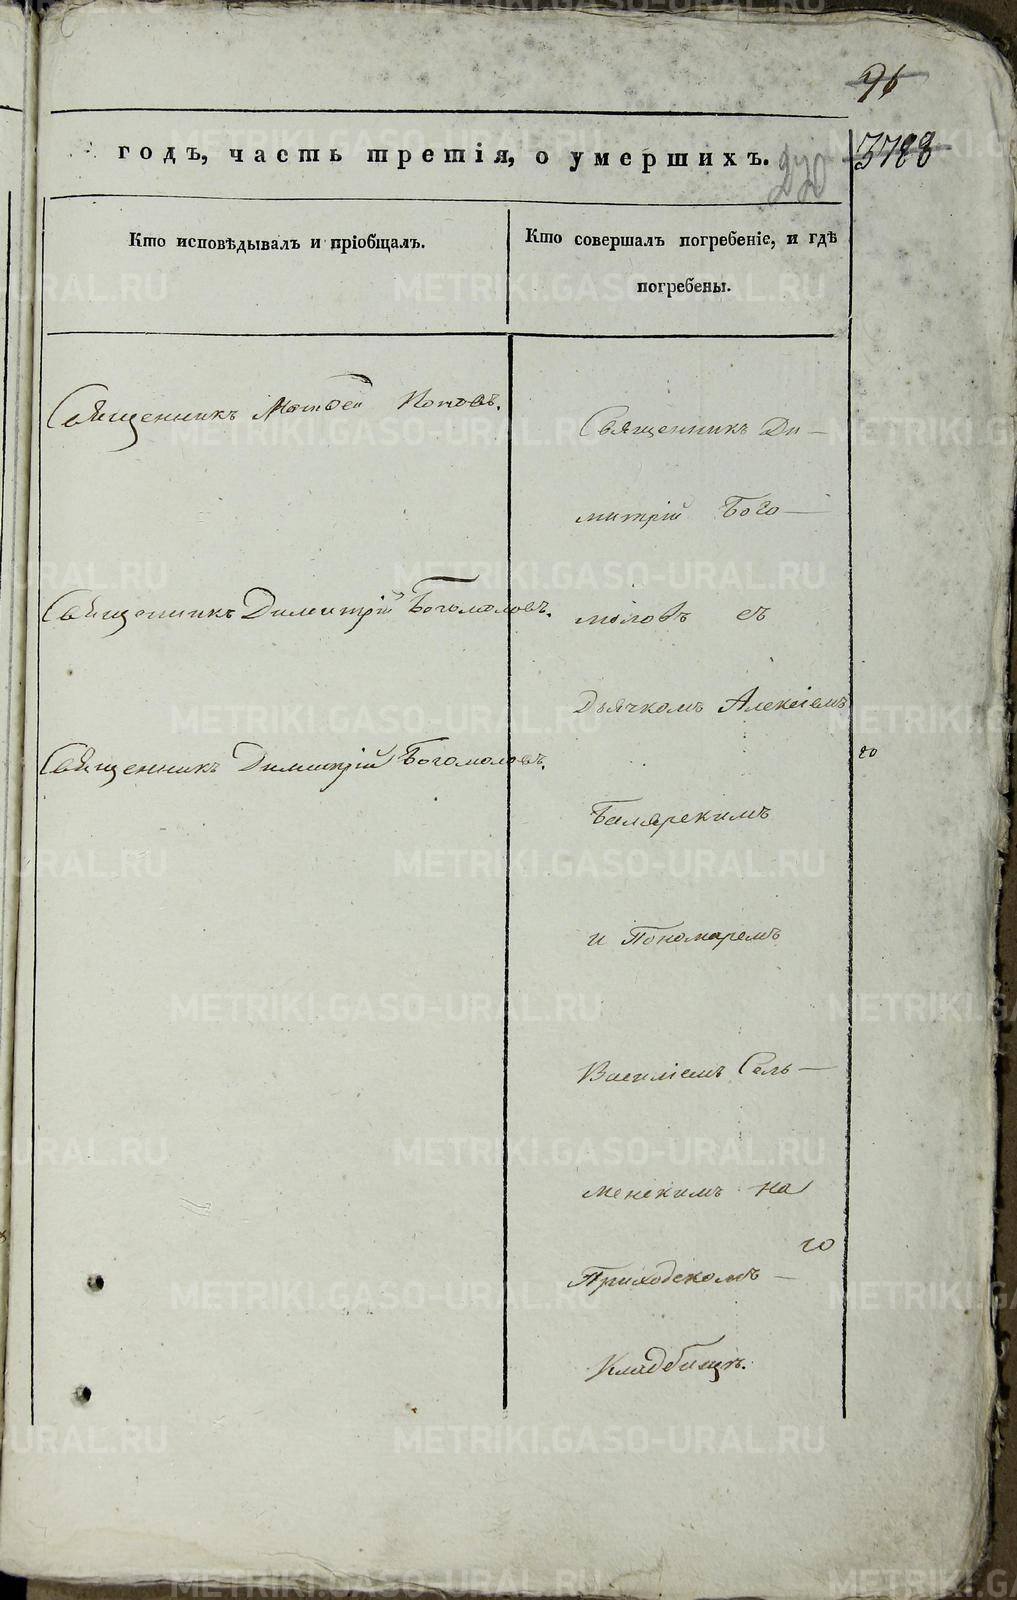 96
3788
годъ, часть третія, о умершихъ.
220
Кто исповѣдывалъ и пріобщалъ.
Кто совершалъ погребеніе, и гдѣ
погребены.
Священникъ Матфей Поповъ.
Священникъ Димитрій Богомоловъ.
Священникъ Димитрій Богомоловъ.
Священникъ Ди-
митрій Бого-
моловъ съ
Дьячкомъ Алексіемъ
го
и Пономаремъ
Василіемъ Сель-
менскимъ на
го
Приходскомъ -
Кладбищѣ.
METRIKI.GASO-URAL.RU